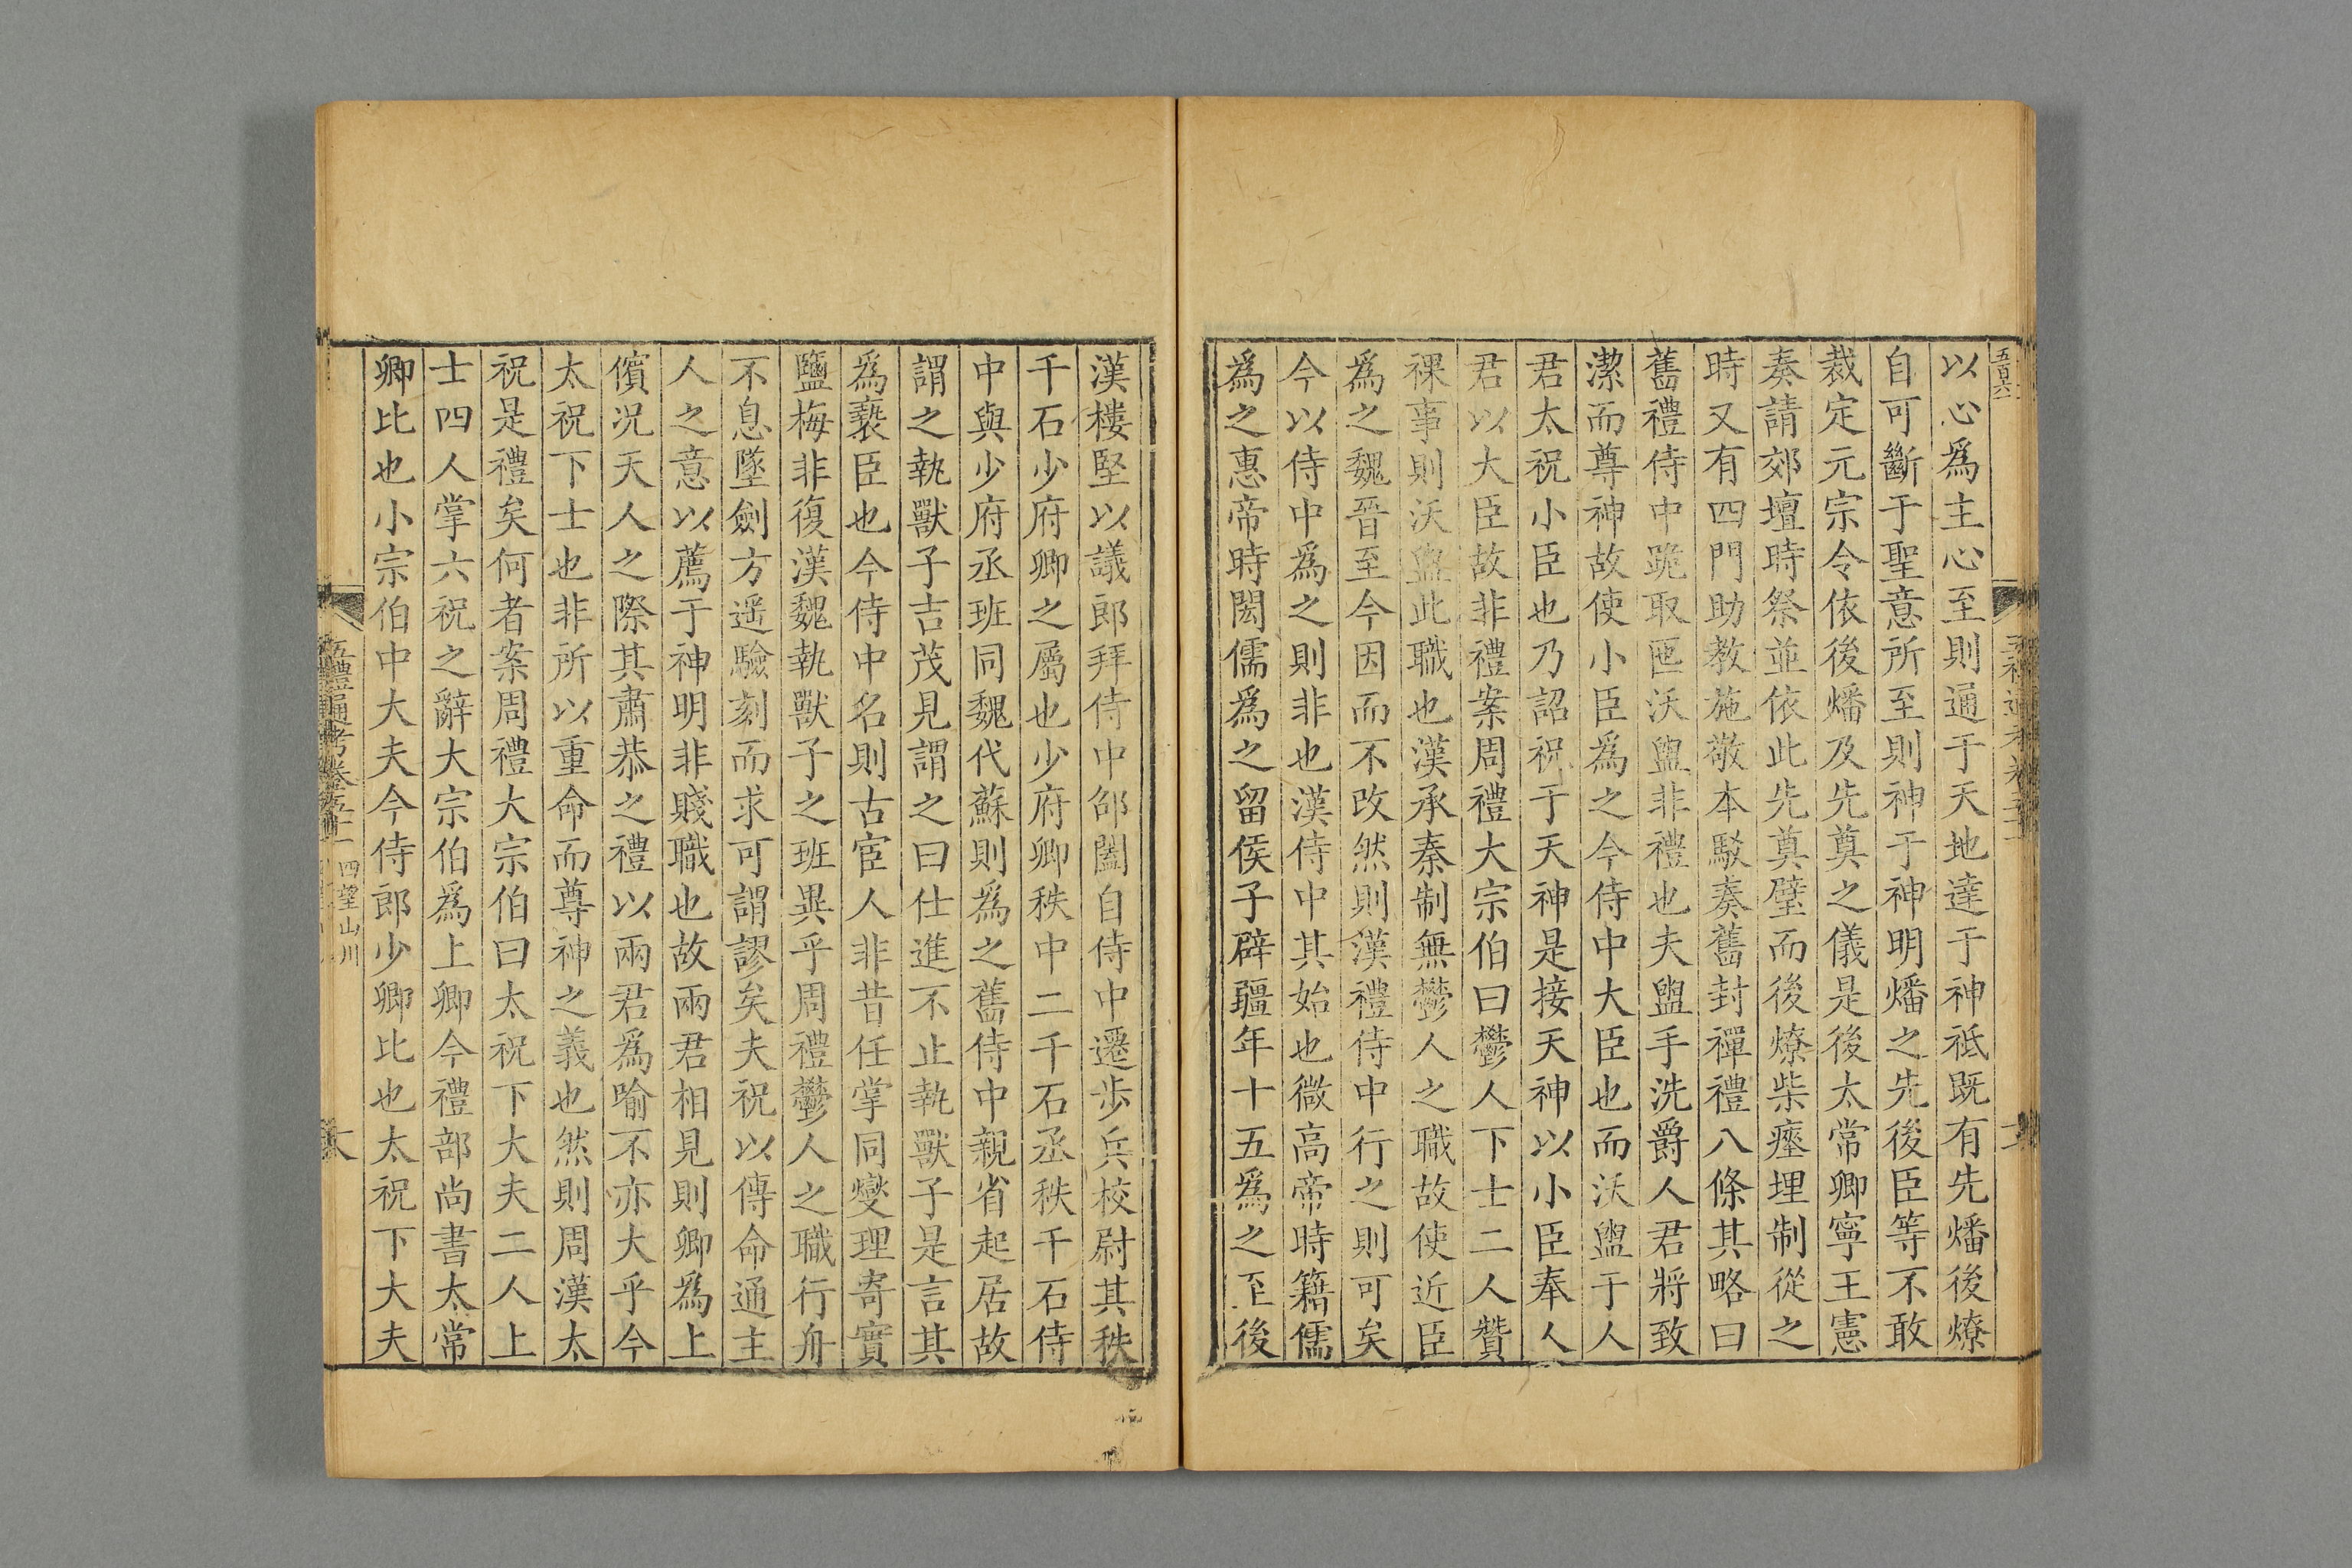 五百六
以心爲主心至則通于天地達于神祗既有先燔後燎
自可斷于聖意所至則神于神明燔之先後臣等不敢
裁定元宗令依後燔及先奠之儀是後太常卿寧王憲
奏請郊壇時祭並依此先奠璧而後燎柴瘞埋制從之
時又有四門助教施敬本駁奏舊封禪禮八條其略曰
舊禮侍中跪取匜沃盥非禮也夫盥手洗爵人君將致
潔而尊神故使小臣爲之今侍中大臣也而沃盥于人
君太祝小臣也乃詔祝于天神是接天神以小臣奉人
君以大臣故非禮案周禮大宗伯曰鬱人下士二人贊
祼事則沃盥此職也漢承秦制無鬱人之職故使近臣
爲之魏晉至今因而不改然則漢禮侍中行之則可矣
今以侍中爲之則非也漢侍中其始也微高帝時籍儒
爲之惠帝時閎儒爲之留侯子辟疆年十五爲之至後
漢樓堅以議郎拜侍中邰闔自侍中遷步兵校尉其秩
千石少府卿之屬也少府卿秩中二千石丞秩千石侍
中與少府丞班同魏代蘇則爲之舊侍中親省起居故
謂之執獸子吉茂見謂之曰仕進不止執獸子是言其
爲褻臣也今侍中名則古宦人非昔任掌同燮理寄實
鹽梅非復漢魏執獸子之班異乎周禮鬱人之職行舟
不息墜劍方遥驗刻而求可謂謬矣夫祝以傳命通主
人之意以薦于神明非賤職也故兩君相見則卿爲上
儐况天人之際其肅恭之禮以兩君爲喻不亦大乎今
太祝下士也非所以重命而尊神之義也然則周漢太
祝是禮矣何者案周禮大宗伯曰太祝下大夫二人上
士四人掌六祝之辭大宗伯爲上卿今禮部尚書太常
卿比也小宗伯中大夫今侍郎少卿比也太祝下大夫
五禮通考卷五十一 四望山川